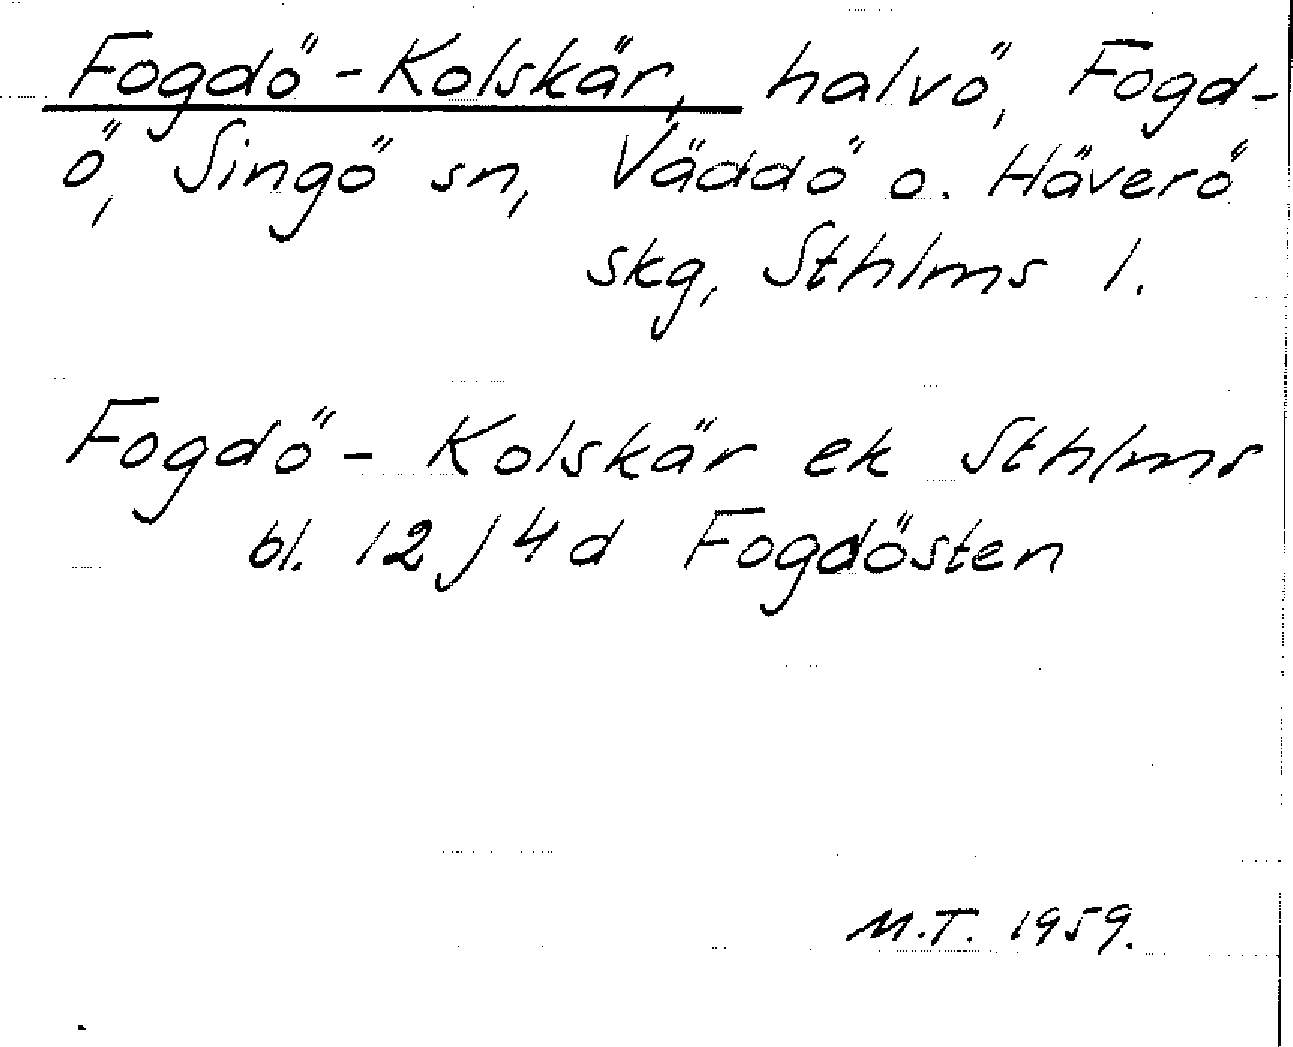 Fogdö-Kolskär, halvö, Fogd-
ö, Singö sn, Väddö o. Häverö
skg, Sthlms l.
Fogdö-Kolskär ek Sthlms
bl. 12 J 4d Fogdösten
M.T. 1959.